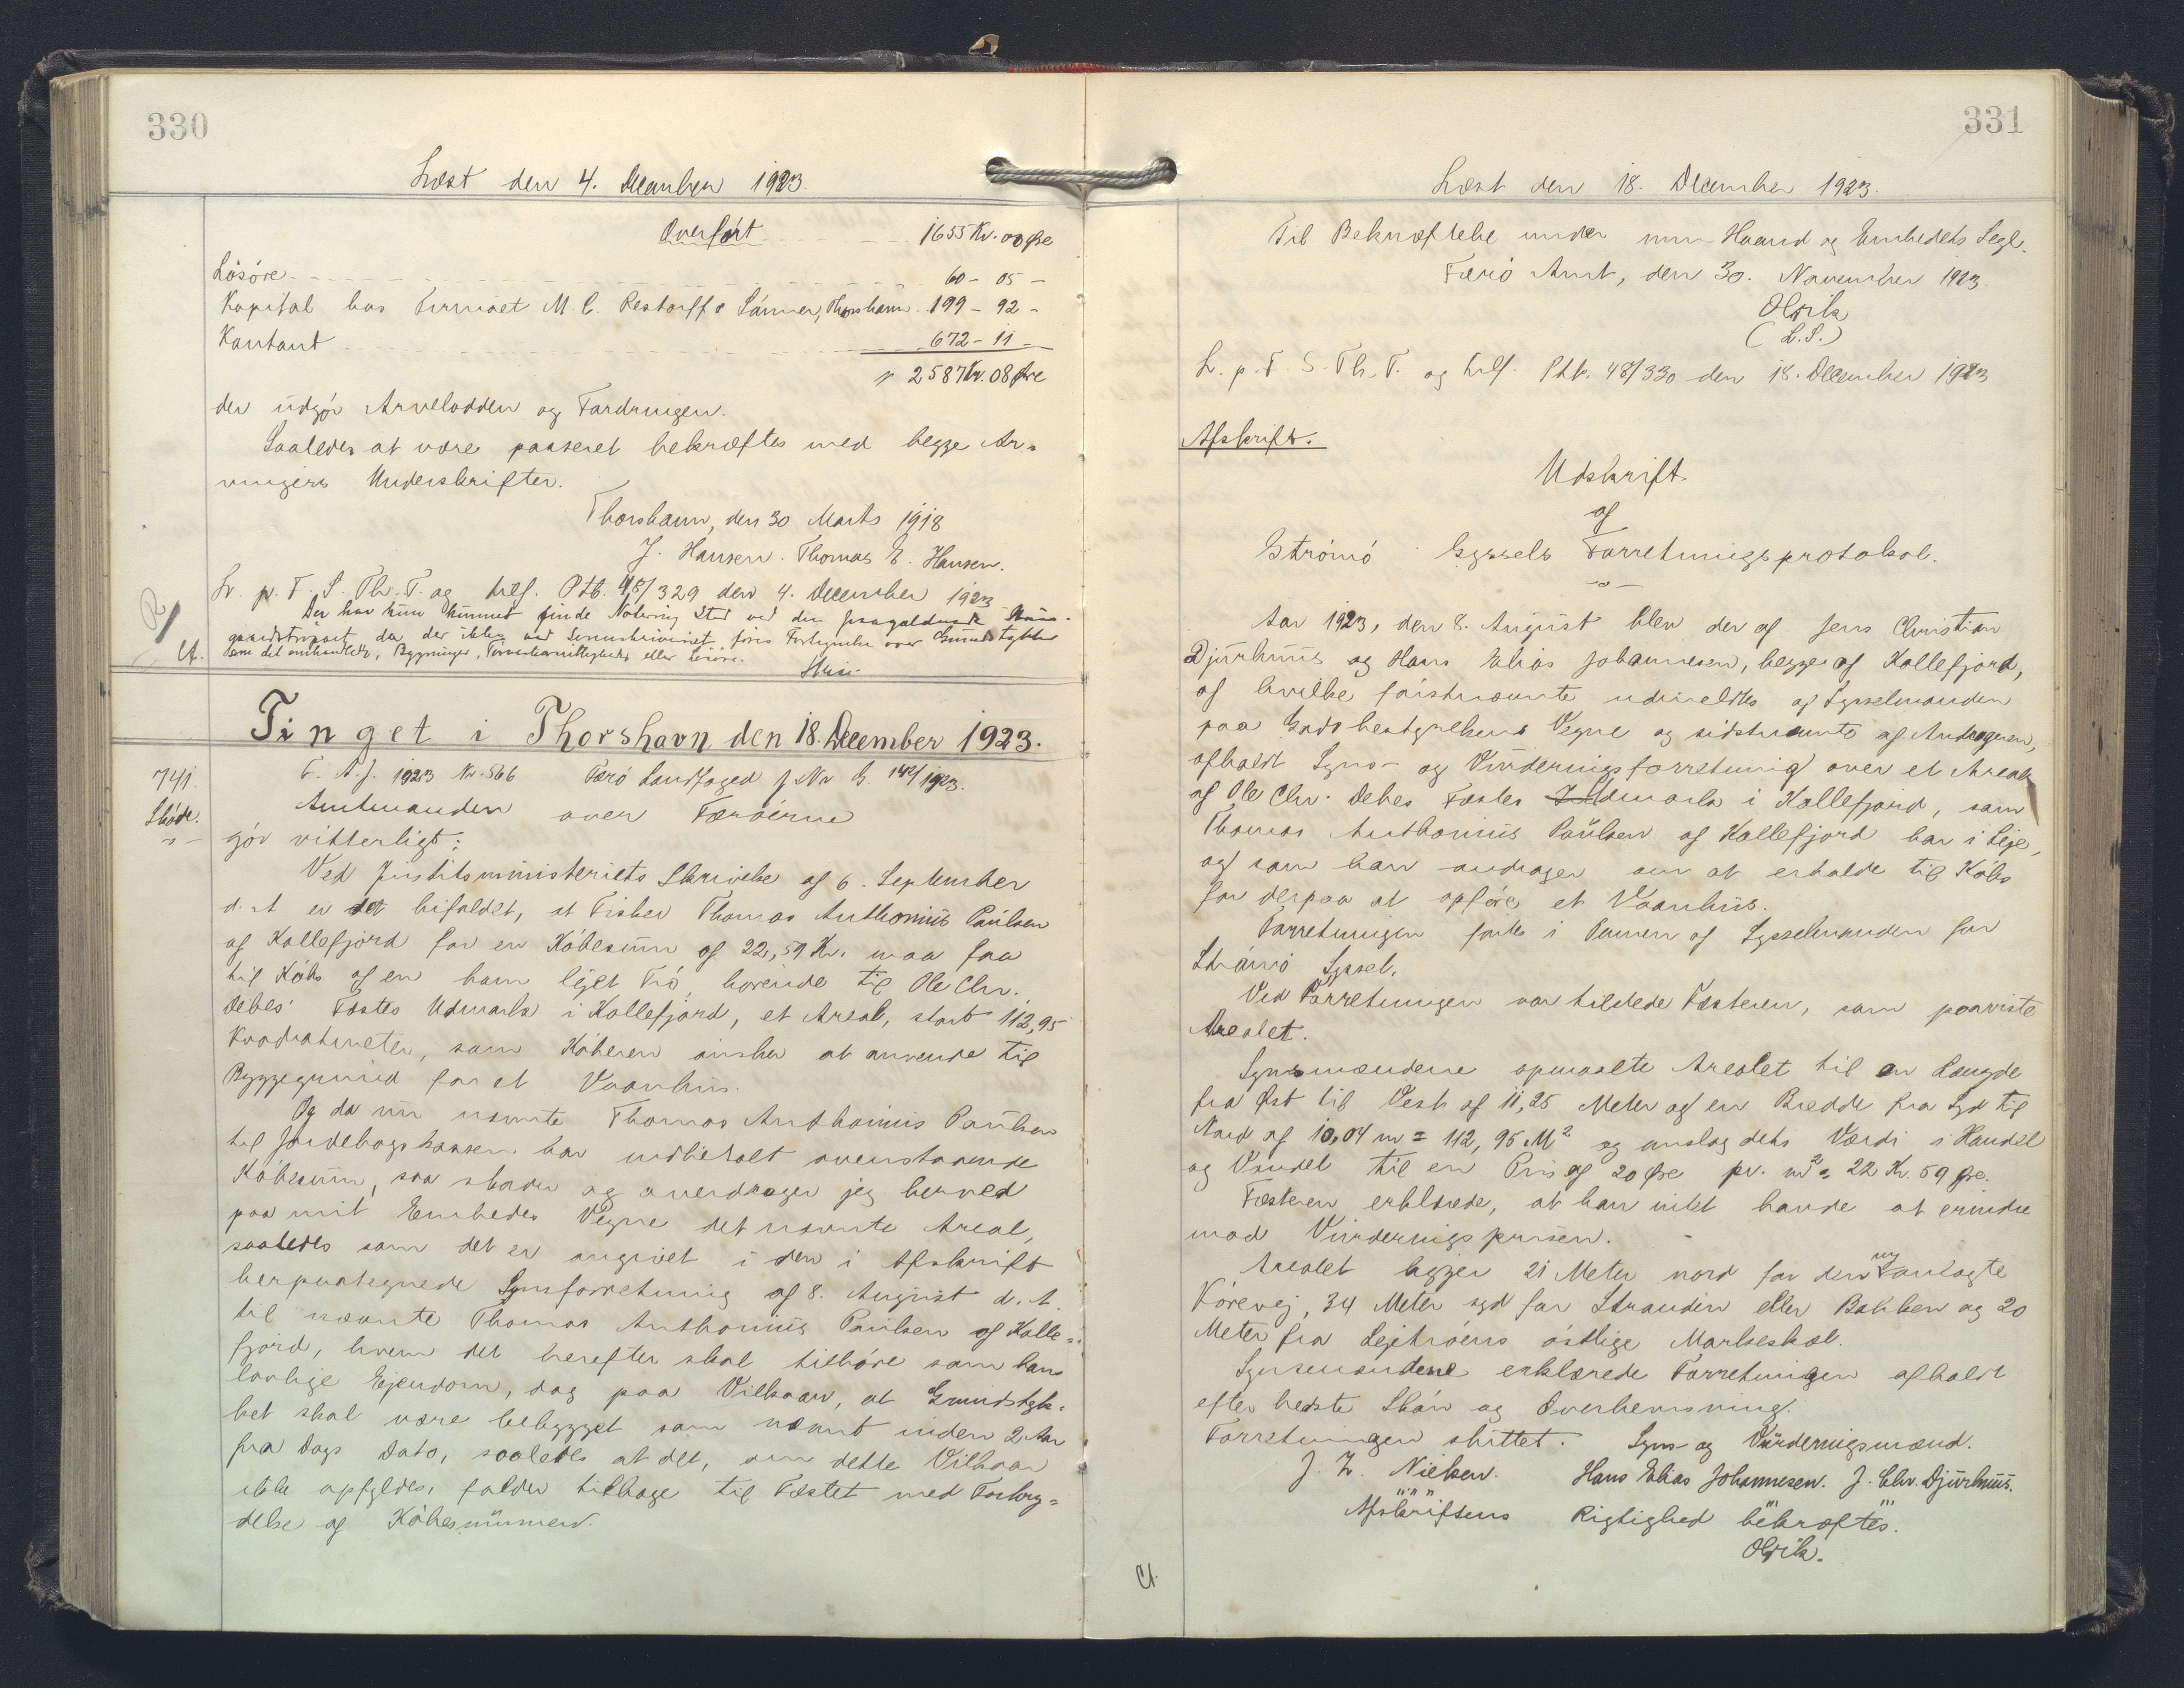 330
Læst den 4. December 1923.
Overført 1655 Kr. 00 Øre
Løsøre 60 - 05 -
Kapital hos Firmaet M C. Restorff & Sønner, Thorshavn 199 - 92 -
Kontant 672 - 11 -
2587 Kr. 08 Øre
der udgør Arvelodden og Fordringen.
Saaledes at være passeret bekræftes med begge Ar=
vingers Underskrifter.
Thorshavn, den 30 Marts 1918
J. Hansen. Thomas E. Hansen.
L. p. F. S. Th. T. og Prtk. 48/329 den 4. December 1923
Der har kun kunnet finde Notering Sted ved den
da der ikke ved Sorenskriveriet føres Fortegnelse over Grundstykker
som det omhandlede, Bygninger, eller Løsøre.
Ct.
Tinget i Thorshavn den 18. December 1923.
741.
Skøde.
F. A. J. 1923 Nr. 566 Færø Landfoged J Nr G. 142/1923.
Amtmanden over Færøerne
gør vitterligt:
Ved Justitsministeriets Skrivelse af 6. September
d. A er det bifaldet, at Fisker Thomas Anthonius Paulsen
af Kollefjord for en Købesum af 22,59 Kr. maa faa
til Købs af en ham lejet Trø, hørende til Ole Chr.
Debes' Fæstes Udmark i Kollefjord, et Areal, stort 112,95
Kvadratmeter, som Køberen ønsker at anvende til
Byggegrund for et Vaanhus.
Og da nu nævnte Thomas Anthonius Paulsen
til Jordebogskassen har indbetalt ovenstaaende
Købesum, saa skøder og overdrager jeg herved
paa mit Embedes Vegne det nævnte Areal,
saaledes som det er angivet i den i Afskrift
herpaategnede Synsforretning af 8. August d. A.
til nævnte Thomas Anthonius Paulsen af Kolle=
fjord, hvem det herefter skal tilhøre som hans
lovlige Ejendom, dog paa Vilkaar, at Grundstyk=
ket skal være bebygget som nævnt inden 2 Aar
fra Dags Dato, saaledes at det, om dette Vilkaar
ikke opfyldes, falder tilbage til Fæstet med Forbry=
delse af Købesummen.
331
Læst den 18. December 1923.
Til Bekræftelse under min Haand og Embedets Segl.
Færø Amt, den 30. November 1923.
Olrik
(L.S.)
L. p. F. S. Th. T. og Prtk. 48/330 den 18. December 1923
Afskrift.
Udskrift
af
Strømø Syssels Forretningsprotokol.
Aar 1923, den 8. August blev der af Jens Christian
Djurhuus og Hans Elias Johannesen, begge af Kollefjord,
af hvilke førstnævnte udmeldtes af Sysselmanden
paa Godsbestyrelsens Vegne og sidstnævnte af Andrageren,
afholdt Syns- og Vurderingsforretning over et Areal
af Ole Chr. Debes Fæstes Udmark i Kollefjord, som
Thomas Anthonius Paulsen af Kollefjord har i Leje,
og som han andrager om at erholde til Købs
for derpaa at opføre et Vaanhus.
Forretningen førtes i Pennen af Sysselmanden for
Strømø Syssel.
Ved Forretningen var tilstede Fæsteren, som paaviste
Arealet.
Synsmændene opmaalte Arealet til en Længde
fra Øst til Vest af 11,25 Meter og en Bredde fra Syd til
Nord af 10,04 m = 112,95 M² og anslog dets Værdi i Handel
og Vandel til en Pris af 20 Øre pr. m² = 22 Kr. 59 Øre.
Fæsteren erklærede, at han intet havde at erindre
mod Vurderingsprisen.
Arealet ligger 21 Meter nord for den ny anlagte
Kørevej, 34 Meter syd for Stranden eller Bakken og 20
Meter fra Lejetrøens østlige Markeskel.
Synsmændene erklærede Forretningen afholdt
efter bedste Skøn og Overbevisning.
Forretningen sluttet. Syns- og Vurderingsmænd.
J. Z. Nielsen. Hans Elias Johannesen. J. Chr. Djurhuus.
Afskriftens Rigtighed bekræftes.
Olrik.
Ct.